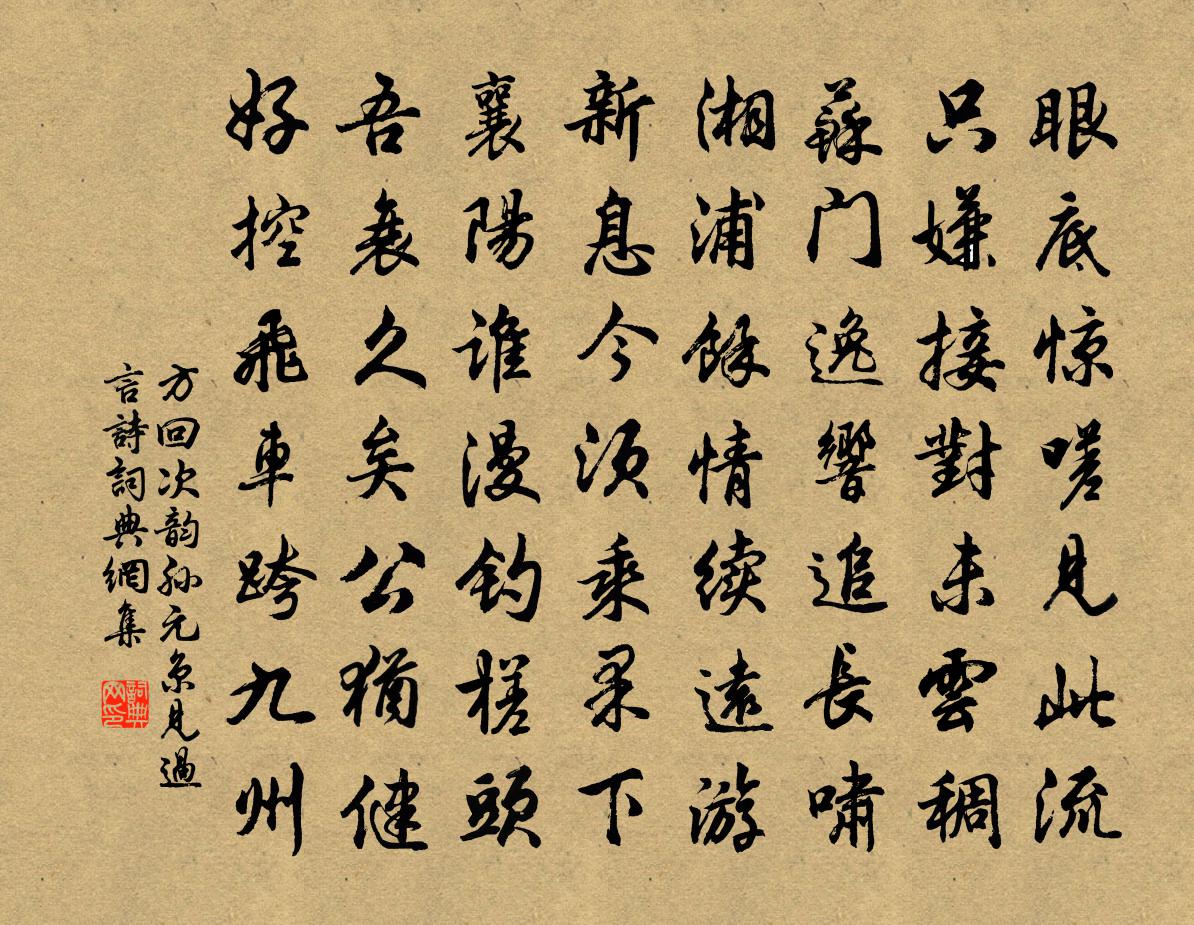 眼底惊嗟見此流
只嫌接對未雲稠
蘇门逸響追長嘯
湘浦餘情续遠游
新息今须乘果下
襄陽谁漫钓槎頭
吾衰久矣公猶健
好控飛車跨九州
方回次韵孙元京見過
言詩詞典網集
詞典网印